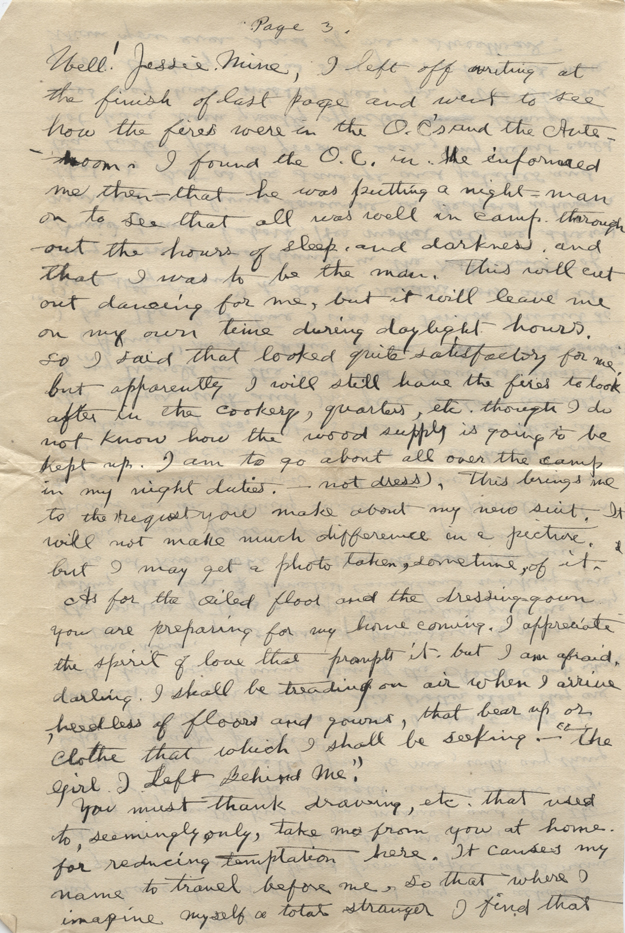 Page 3.
Well! Jessie Mine, I left off writing at
the finish of last page and went to see
how the fires were in the O.C's and the Ante-
-room. I found the O.C. in. He informed
me then—that he was putting a night-man
on to see that all was well in camp through
out the hours of sleep, and darkness, and
that I was to be the man. This will cut
out dancing for me, but it will leave me
on my own time during daylight hours.
So I said that looked quite satisfactory for me,
but apparently I will still have the fires to look
after in the cookery, quarters, etc. though I do
not know how the wood supply is going to be
kept up. I am to go about all over the camp
in my night duties. — not dress). This brings me
to the request you make about my new suit. It
will not make much difference in a picture.
but I may get a photo taken, sometime, of it.
As for the oiled floor and the dressing-gown
you are preparing for my home coming. I appreciate
the spirit of love that prompts it. but I am afraid,
darling. I shall be treading on air when I arrive
heedless of floors and gowns, that bear up or
clothe that which I shall be seeking — "The
Girl I Left Behind Me."
You must thank drawing, etc. that used
to, seemingly only, take me from you at home.
for reducing temptation here. It causes my
name to travel before me, so that where I
imagine myself a total stranger I find that